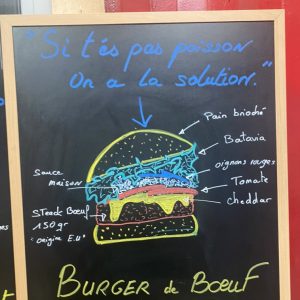 "Si t'és pas poisson
On a la solution."
Pain brioché
Batavia
oignons rouges
Tomate
cheddar
Sauce
maison
STeack Bœuf
150gr
"origine E.U"
BURGER de BŒUF